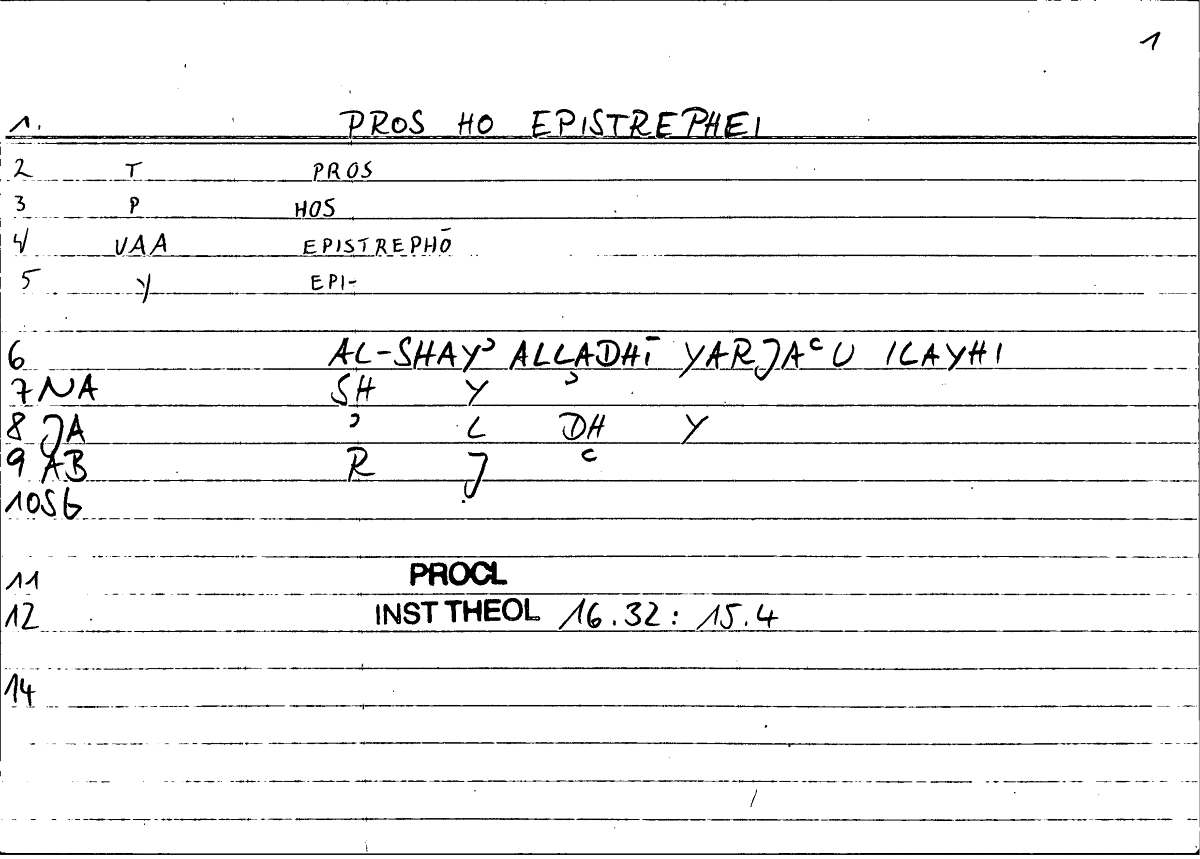 1
1. PROS HO EPISTREPHEI
2 T PROS
3 P HOS
4 VAA EPISTREPHŌ
5 Y EPI-
6 AL-SHAYʾ ALLADHĪ YARJAʿU ILAYHI
7 NA SH Y ʾ
8 JA ʾ L DH Y
9 AB R J ʿ
10 SG
11 PROCL
12 INST THEOL 16.32: 15.4
14